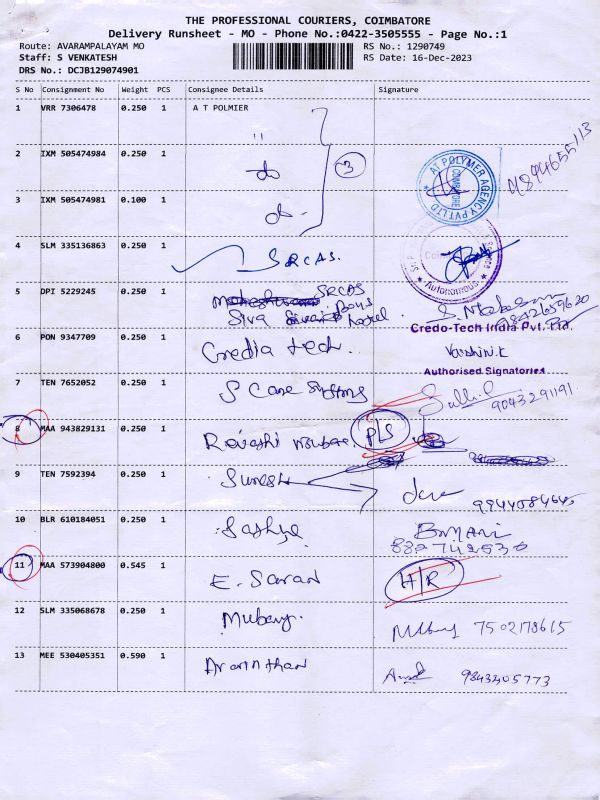 THE PROFESSIONAL COURIERS, COIMBATORE
Delivery Runsheet - MO - Phone No.:0422-3505555 - Page No.:1
Route: AVARAMPALAYAM MO RS No.: 1290749
Staff: S VENKATESH RS Date: 16-Dec-2023
DRS No.: DCJB129074901
S No Consignment No Weight PCS Consignee Details Signature
1 VRR 7306478 0.250 1 A T POLMIER
"
2 IXM 505474984 0.250 1 do 3
AT POLYMER AGENCY PVT LTD COIMBATORE
3 IXM 505474981 0.100 1 do
4 SLM 335136863 0.250 1 SRCAS.
Autonomous
5 DPI 5229245 0.250 1 SRCAS
Siva Boys hostel
Credo-Tech India Pvt. Ltd.
6 PON 9347709 0.250 1 Credia tech Varshini.K
Authorised Signatories
7 TEN 7652052 0.250 1 S Care Systems
9043291191
8 MAA 943829131 0.250 1 PLS
9 TEN 7592394 0.250 1 Suresh
10 BLR 610184051 0.250 1
11 MAA 573904800 0.545 1 E. Saran H/R
12 SLM 335068678 0.250 1 Mubary. 7502178615
13 MEE 530405351 0.590 1 Aravinthan 9843205773